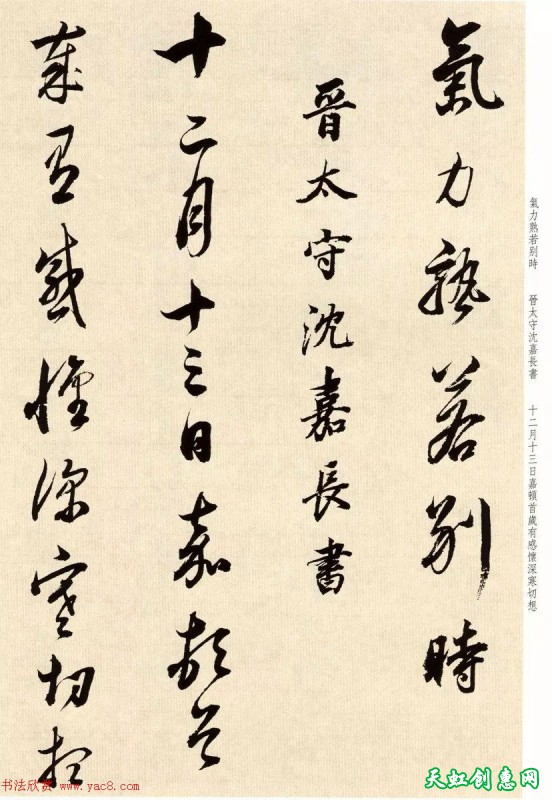 氣力孰若別時
晉太守沈嘉長書
十二月十三日嘉頓首
歲有感懷深寒切想
氣力熟若別時　晉太守沈嘉長書　十二月十三日嘉頓首歲有感懷深寒切想
书法欣赏
www.yac8.com
天虹创惠网